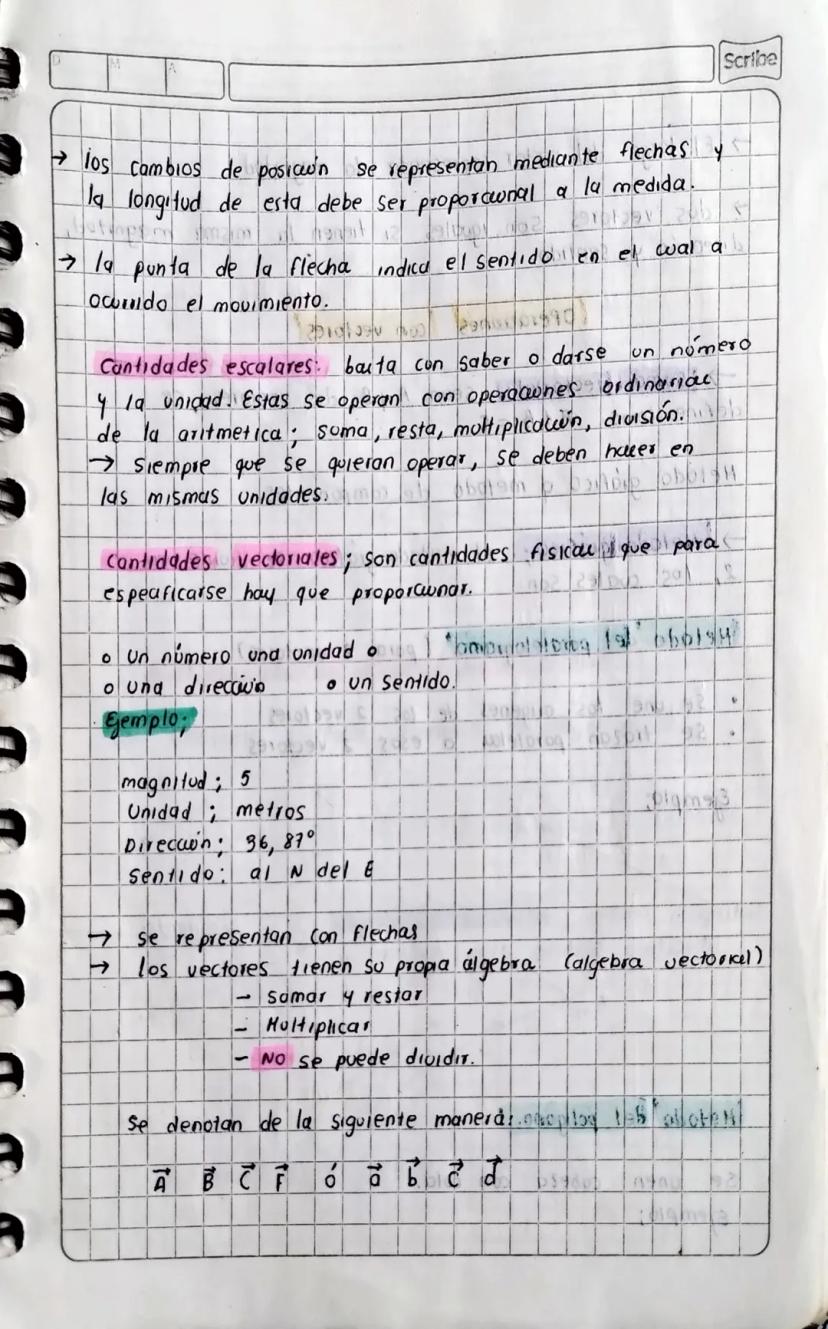 D M A
Scribe
→ los cambios de posición se representan mediante flechas y
la longitud de esta debe ser proporcional a la medida.
→ la punta de la flecha indica el sentido en el cual a
ocurrido el movimiento.
Cantidades escalares: basta con saber o darse un número
y la unidad. Estas se operan con operaciones ordinarias
de la aritmetica; suma, resta, multiplicación, división.
→ siempre que se quieran operar, se deben hacer en
las mismas unidades.
Cantidades vectoriales; son cantidades fisicas que para
especificarse hay que proporcionar.
o un número una unidad o
o una dirección o un sentido.
Ejemplo;
magnitud; 5
Unidad; metros
Dirección; 36,87°
Sentido: al N del E
→ se representan con flechas
→ los vectores tienen su propia álgebra (algebra vectorial)
- sumar y restar
- Multiplicar
- NO se puede dividir.
Se denotan de la siguiente manera:
A⃗ B⃗ C⃗ F⃗ ó a⃗ b⃗ c⃗ d⃗